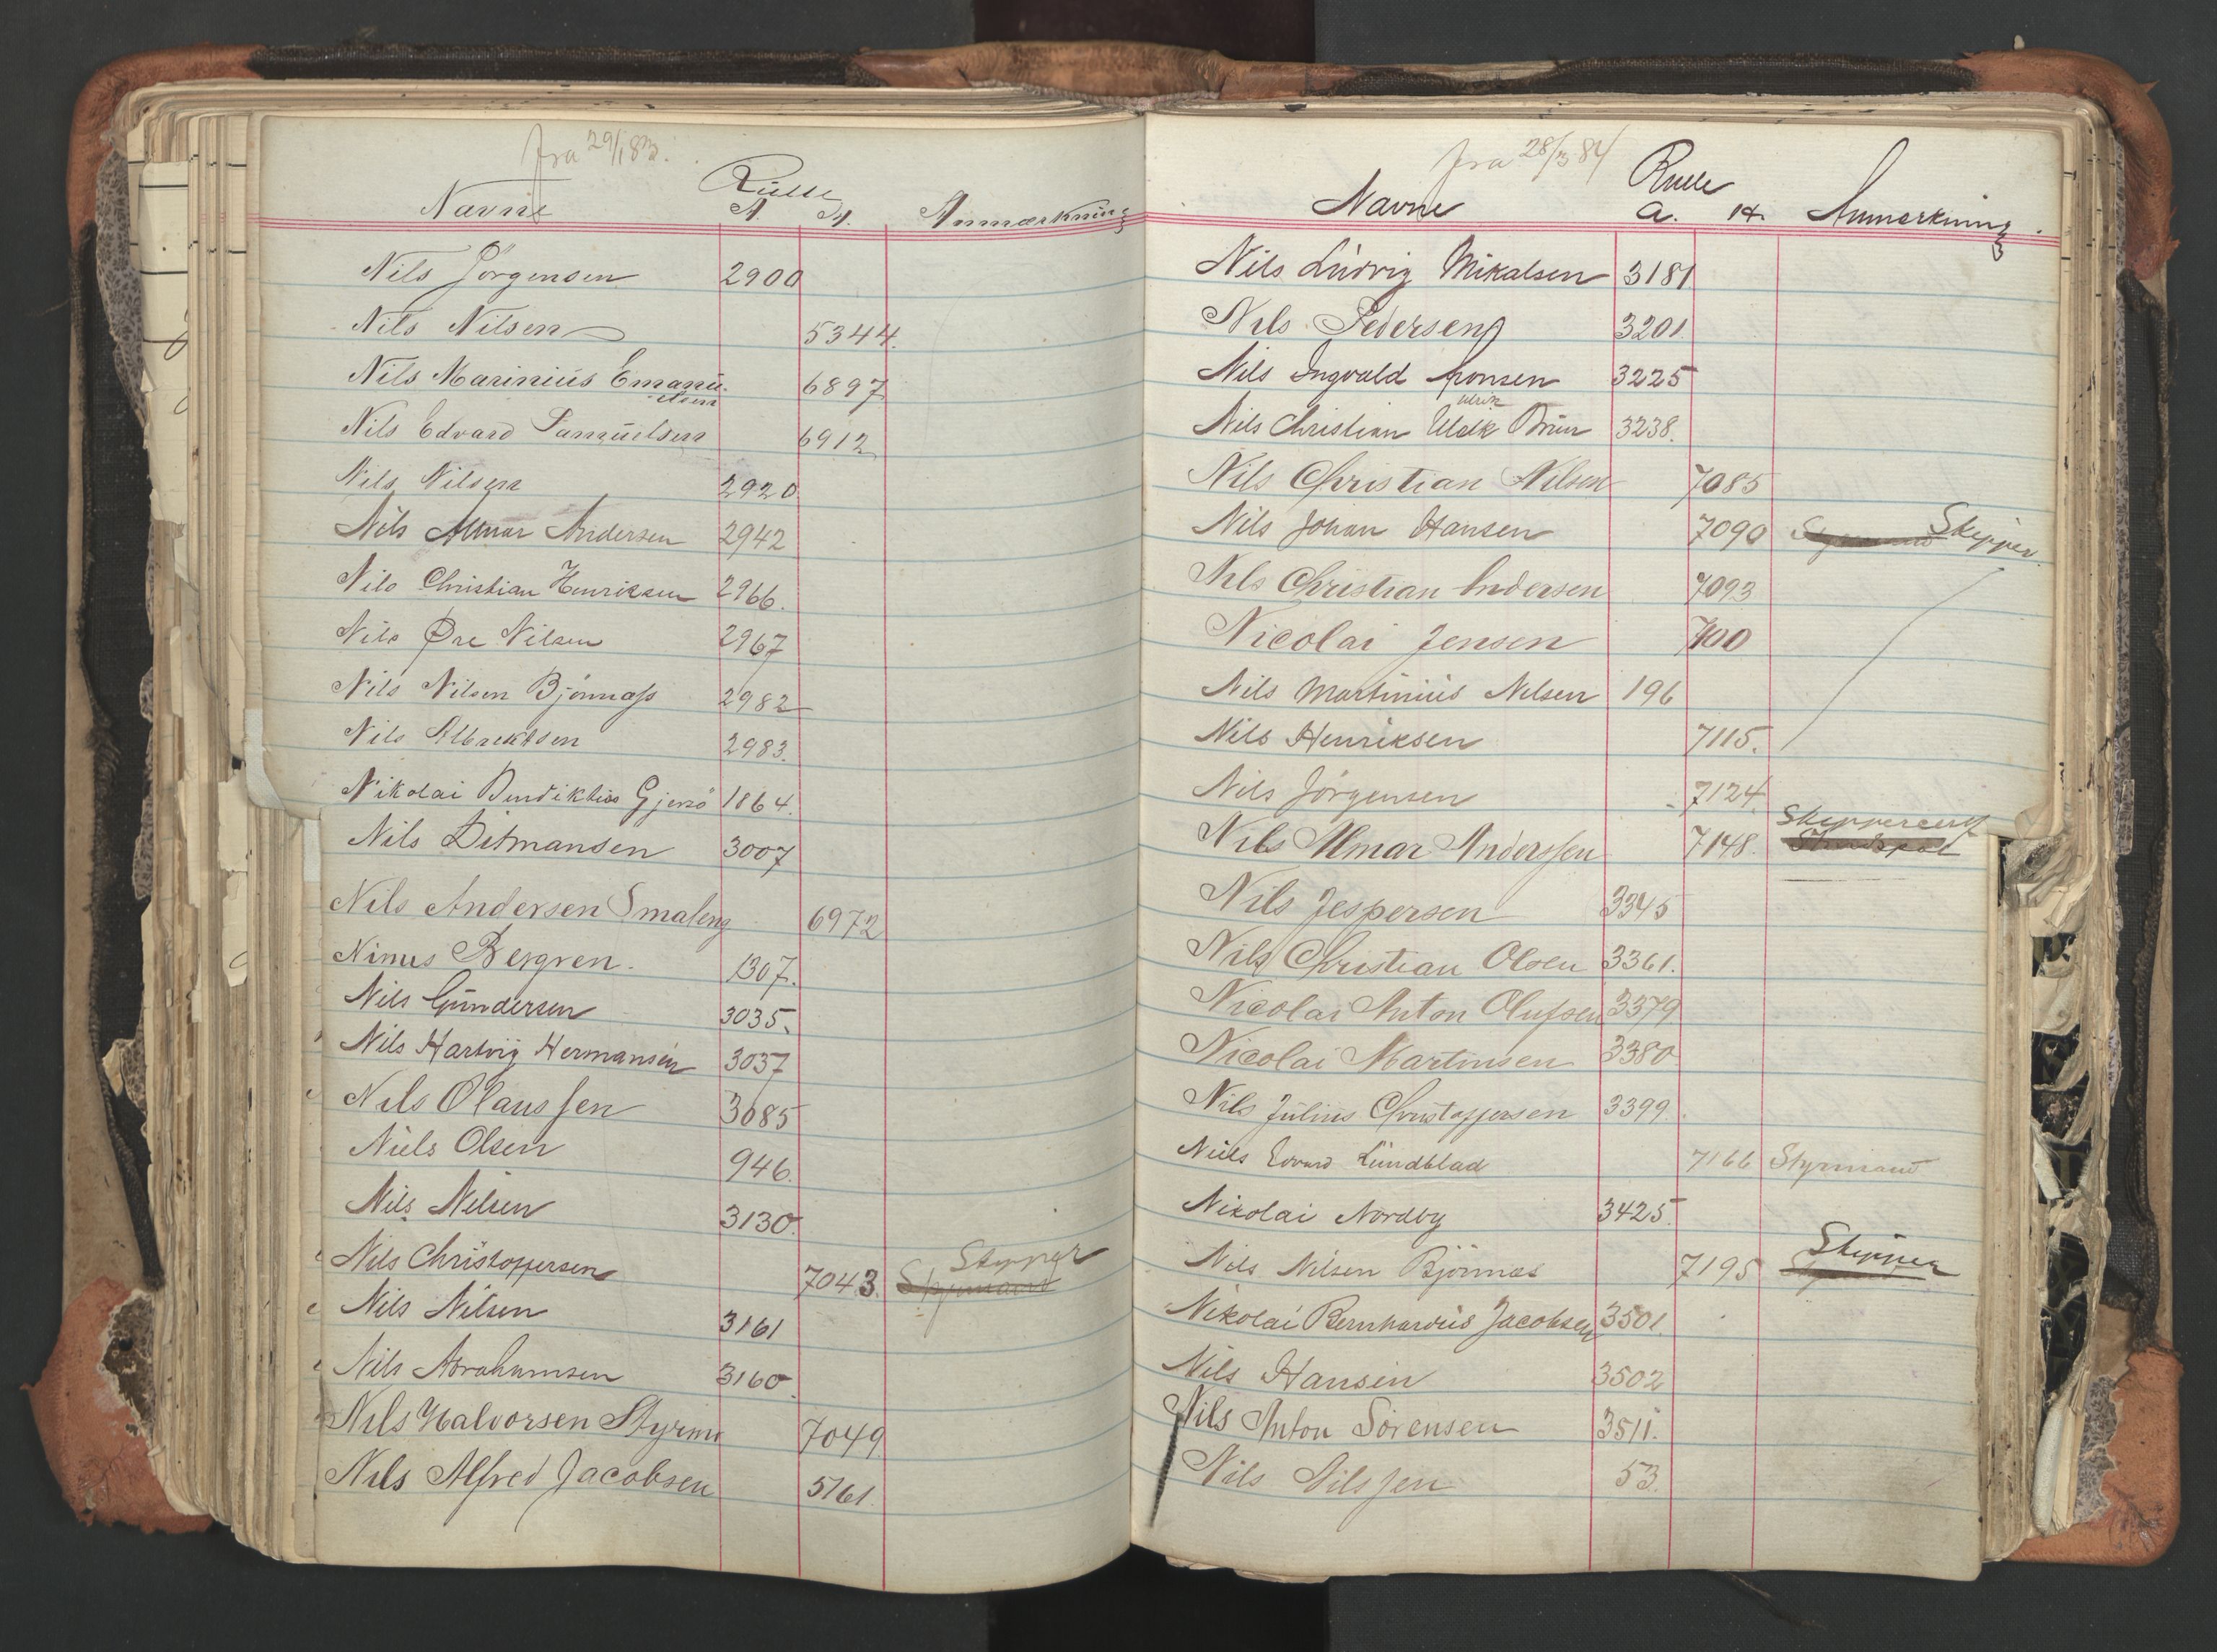 fra 29/1 83.
Rulle
Navne A. H. Anmærkning
Nils Jörgensen 2900
Nils Nilsen 5344.
Nils Marinius Emanu-
elsen 6897
Nils Edvard Samuelsen 6912
Nils Nilsen 2920
Nils Almar Andersen 2942
Nils Christian Henriksen 2966.
Nils Øre Nilsen 2967
Nils Nilsen Bjönnæss 2982
Nils Albrektsen 2983.
Nikolai Bendiktius Gjersö 1864.
Nils Ditmansen 3007
Nils Andersen Smaleng 6972
Ninus Bergren. 1307.
Nils Gundersen 3035.
Nils Hartvig Hermansen 3037
Nils Olaussen 3085
Niels Olsen 946.
Nils Nilsen 3130.
Skipper
Nils Christoffersen 7043. Styrmand
Nils Nilsen 3161
Nils Abrahamsen 3160.
Nils Halvorsen Styrm 7049
Nils Alfred Jacobsen 5761.
fra 28/3 84
Rulle
Navne A. H. Anmerkning
Nils Ludvig Mikalsen 3181
Nils Pedersen 3201.
Nils Ingvald Aronsen 3225
Ulrik
Nils Christian Ulrik Brun 3238.
Nils Christian Nilsen 7085
Nils Johan Hansen 7090 Styrmand Skipper
Nils Christian Andersen 7093
Nicolai Jensen 7100
Nils Martinius Nilsen 196
Nils Henriksen 7115.
Nils Jörgensen 7124.
Nils Almar Anderssen 7148. Skippercert
Nils Jespersen 3345
Nils Christian Olsen 3361.
Nicolai Anton Olufsen 3379
Nicolai Martinsen 3380
Nils Julius Christoffersen 3399.
Niels Edvard Lundblad 7166 Styrmand
Nikolai Nordby 3425.
Nils Nilsen Bjönnes 7195 Skipper
Nikolai Bernhardus Jacobsen 3501.
Nils Hansen 3502
Nils Anton Sörensen 3511.
Nils Nilssen 53.